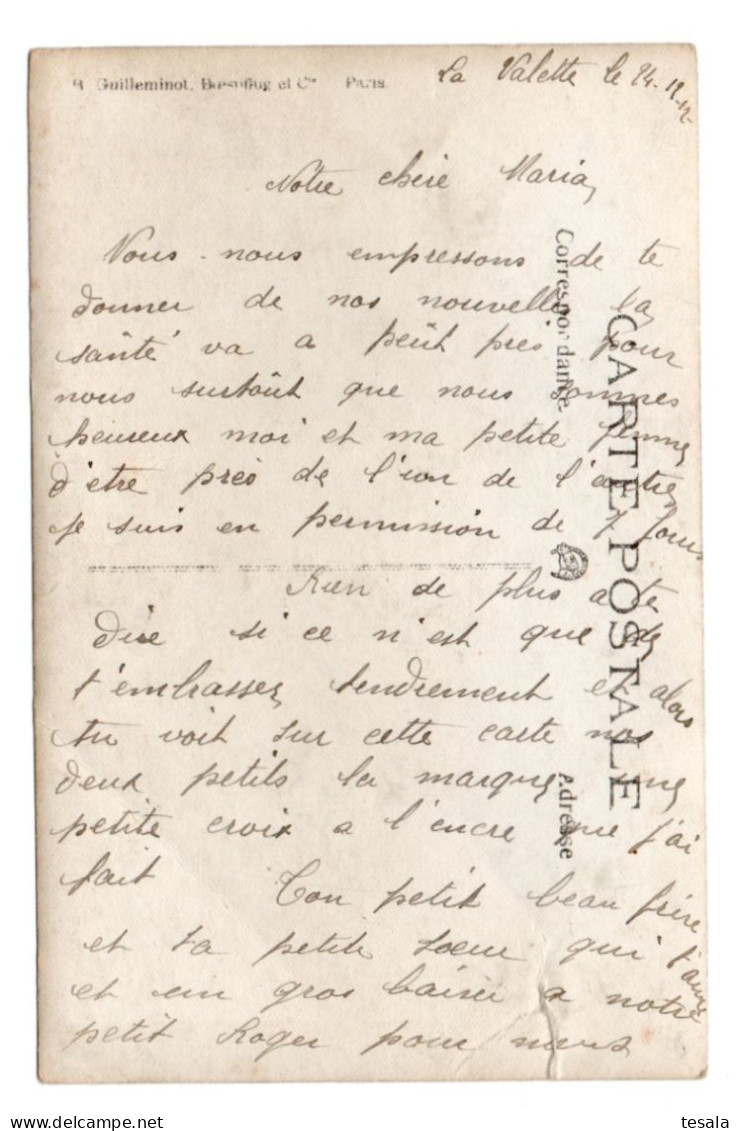 Guilleminot, Boespflug et Cie Paris.
La Valette le 24-12-12-
Notre chere Maria,
Nous nous empressons de te
donner de nos nouvelle la
santé va a peut pres pour
nous surtout que nous sommes
heureux moi et ma petite femme
d'etre près de l'un de l'autre
je suis en permission de 7 jours
Rien de plus a te
dire si ce n'est que de
t'embrasser tendrement et alors
tu voit sur cette carte nos
deux petits la marque une
petite croix a l'encre que j'ai
fait Ton petit beau frère
et ta petite soeur qui t'aime
et un gros baisie a notre
petit Roger pour nous
CARTE POSTALE
Correspondance
Adresse
tesala